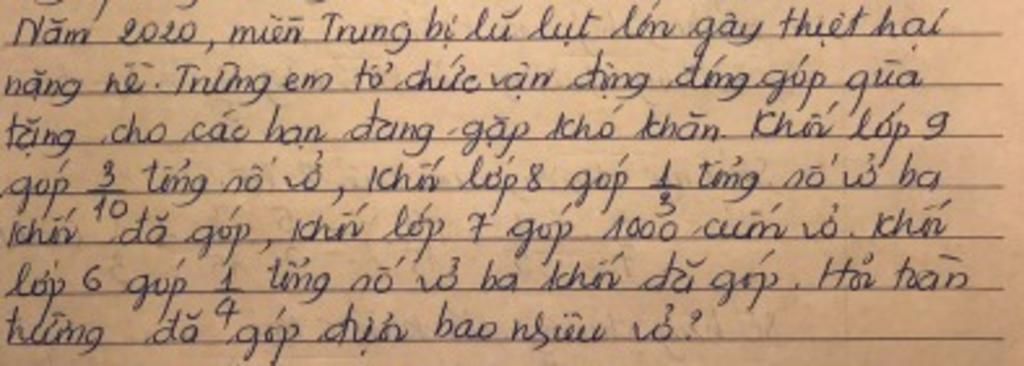 Năm 2020, miền Trung bị lũ lụt lớn gây thiệt hại
nặng nề. Trường em tổ chức vận động đóng góp quà
tặng cho các bạn đang gặp khó khăn. Khối lớp 9
góp 3/10 tổng số vở, khối lớp 8 góp 1/3 tổng số vở ba
khối đã góp, khối lớp 7 góp 1000 cuốn vở. Khối
lớp 6 góp 1/4 tổng số vở ba khối đã góp. Hỏi toàn
trường đã góp được bao nhiêu vở?